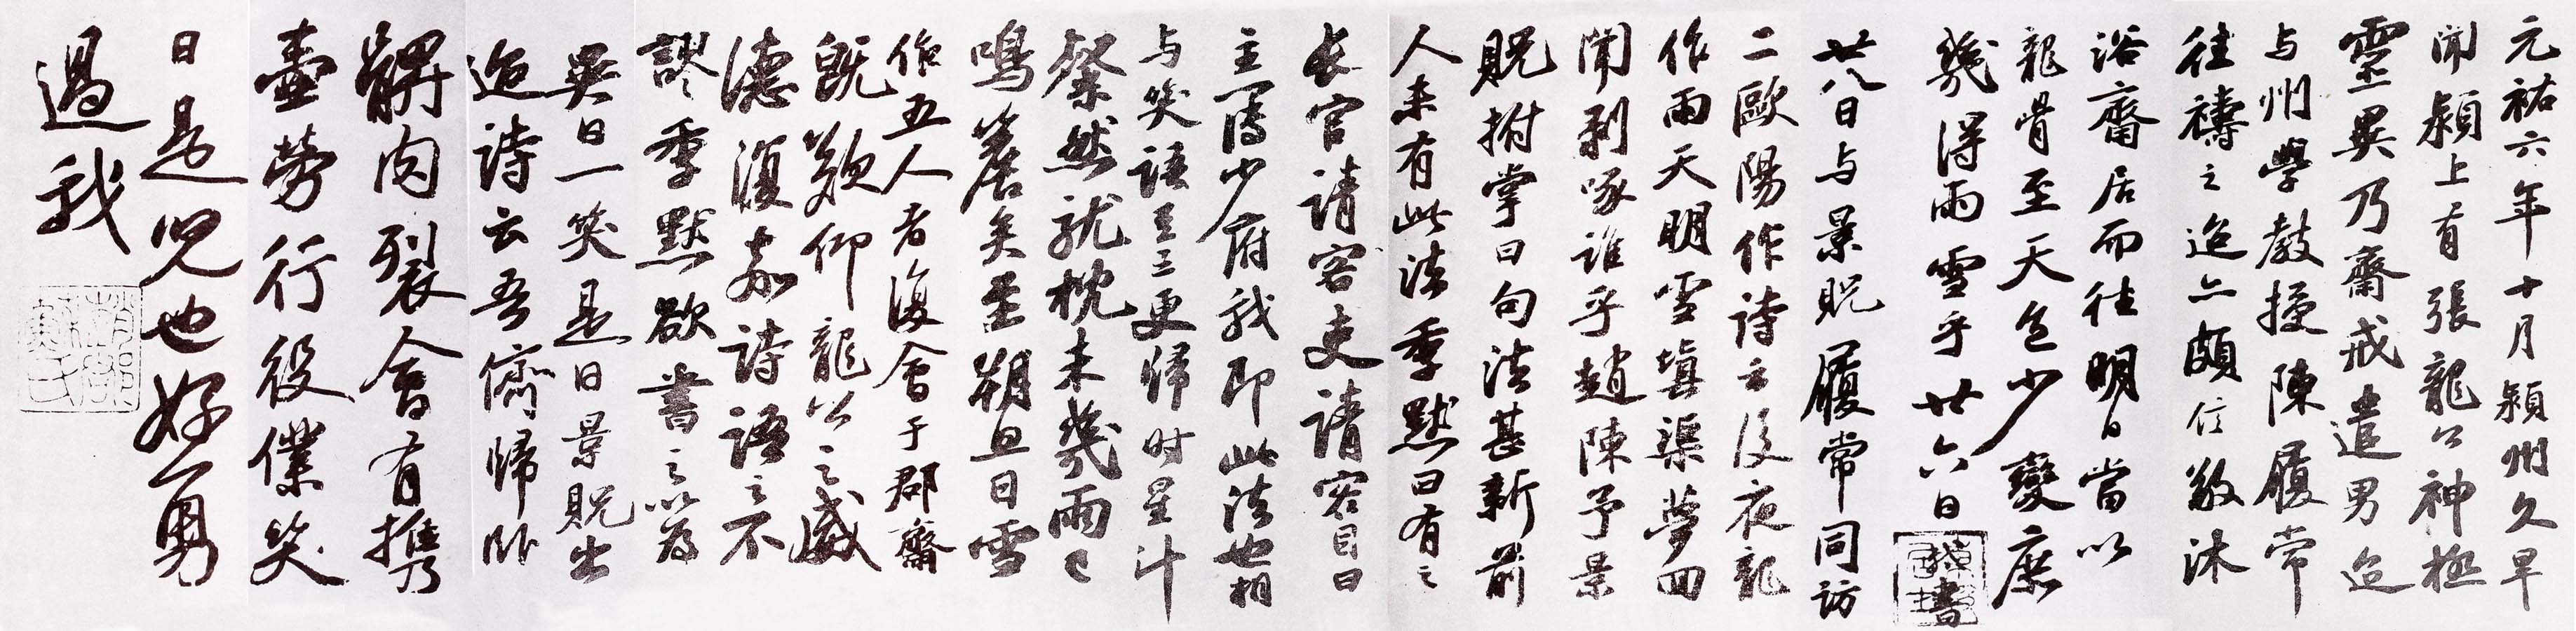 元祐六年十月潁州久旱
聞潁上有張龍公神極
靈異乃齋戒遣男迨
与州學教授陳履常
往禱之迨亦頗信敬沐
浴齋居而往明日當以
龍骨至天色少變庶
幾得雨雪乎廿六日軾書
廿八日与景貺履常同訪
二歐陽作詩云後夜龍
作雨天明雪填渠夢回
聞剥啄誰乎趙陳予景
貺拊掌曰句法甚新前
人未有此法季默曰有之
長官請客吏請客目曰
主簿少府我即此法也相
与笑語至三更歸时星斗
粲然就枕未幾雨已
鳴簷矣至朔旦日雪
作五人者復會于郡齋
既歎仰龍公之威
德復嘉詩語之不
謬季默欲書之以為
異日一笑是日景貺出
迨詩云吾儕歸卧
髀肉裂會有攜
壺勞行役僕笑
曰是兒也好勇
過我